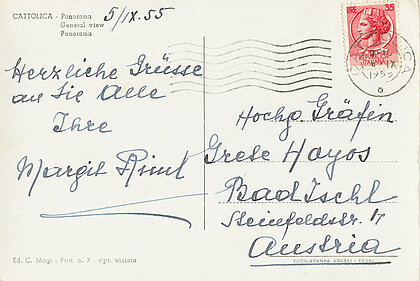 CATTOLICA - Panorama
General view
Panorama
5/IX.55
Herzliche Grüsse
an Sie Alle
Ihre
Margit
LIRE 35
ITALIANA
1955
Hochg. Gräfin
Grete Hoyos
Bad Ischl
Steinfeldstr. 7
Austria
Ed. C. Magi - Priv. n. 7 - ripr. vietata
FOTO-STAMPA ANGELI - TERNI